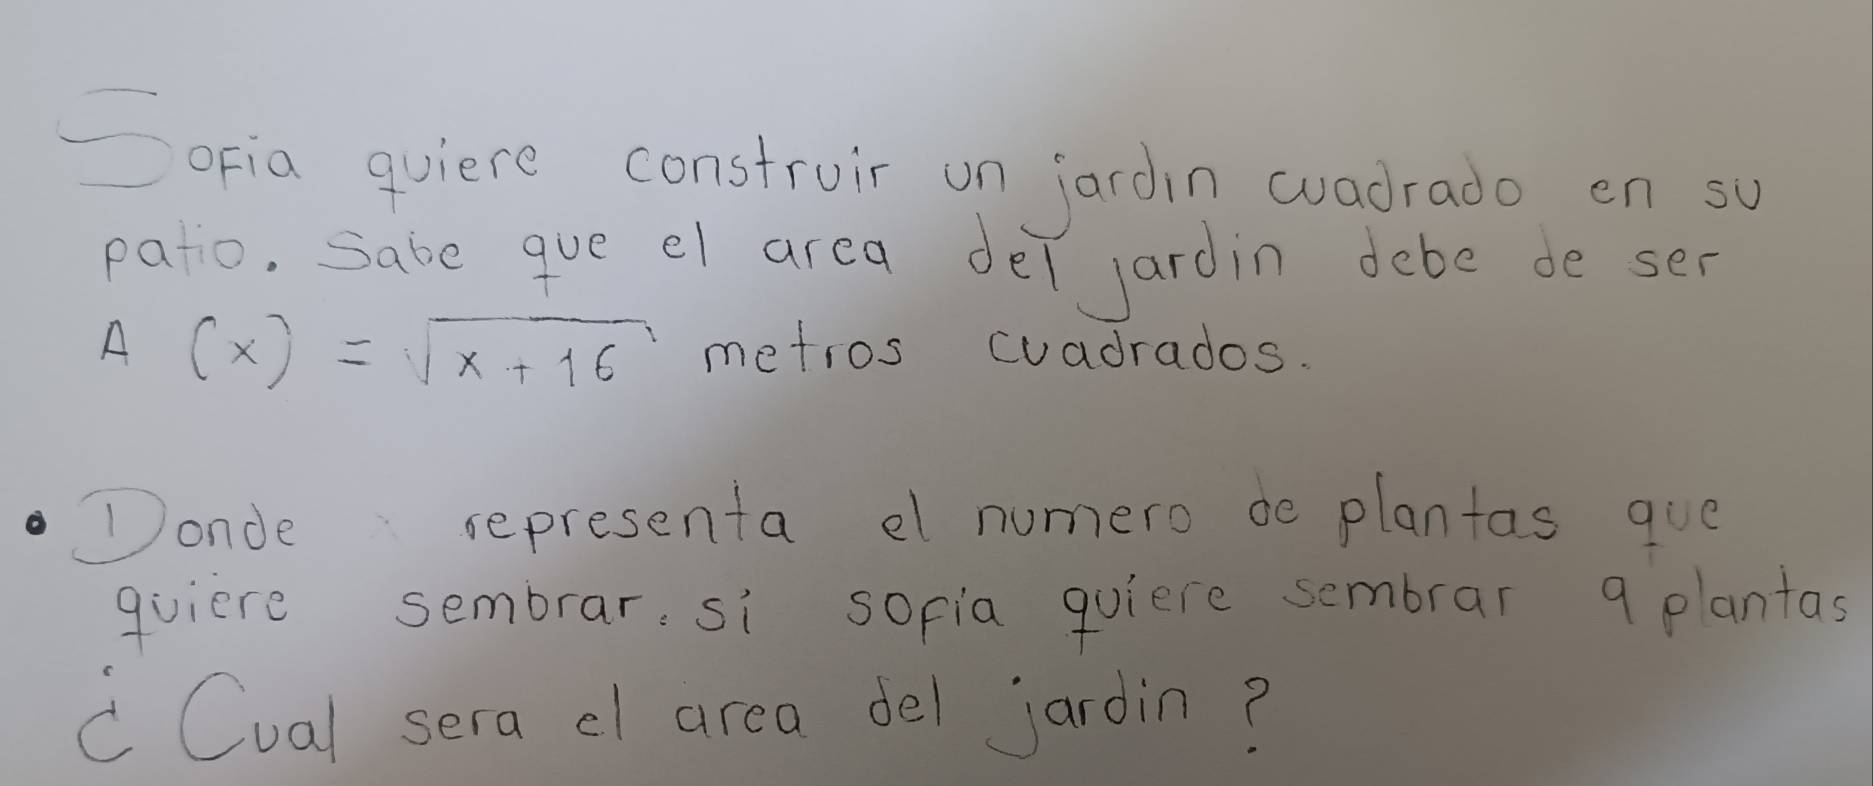 Sofia quiere construir un jardin cuadrado en su
patio. Sabe que el area del jardin debe de ser
A (x) = √x + 16 metros cuadrados.
• Donde x representa el numero de plantas que
quiere sembrar. si sofia quiere sembrar 9 plantas
¿Cual sera el area del jardin?